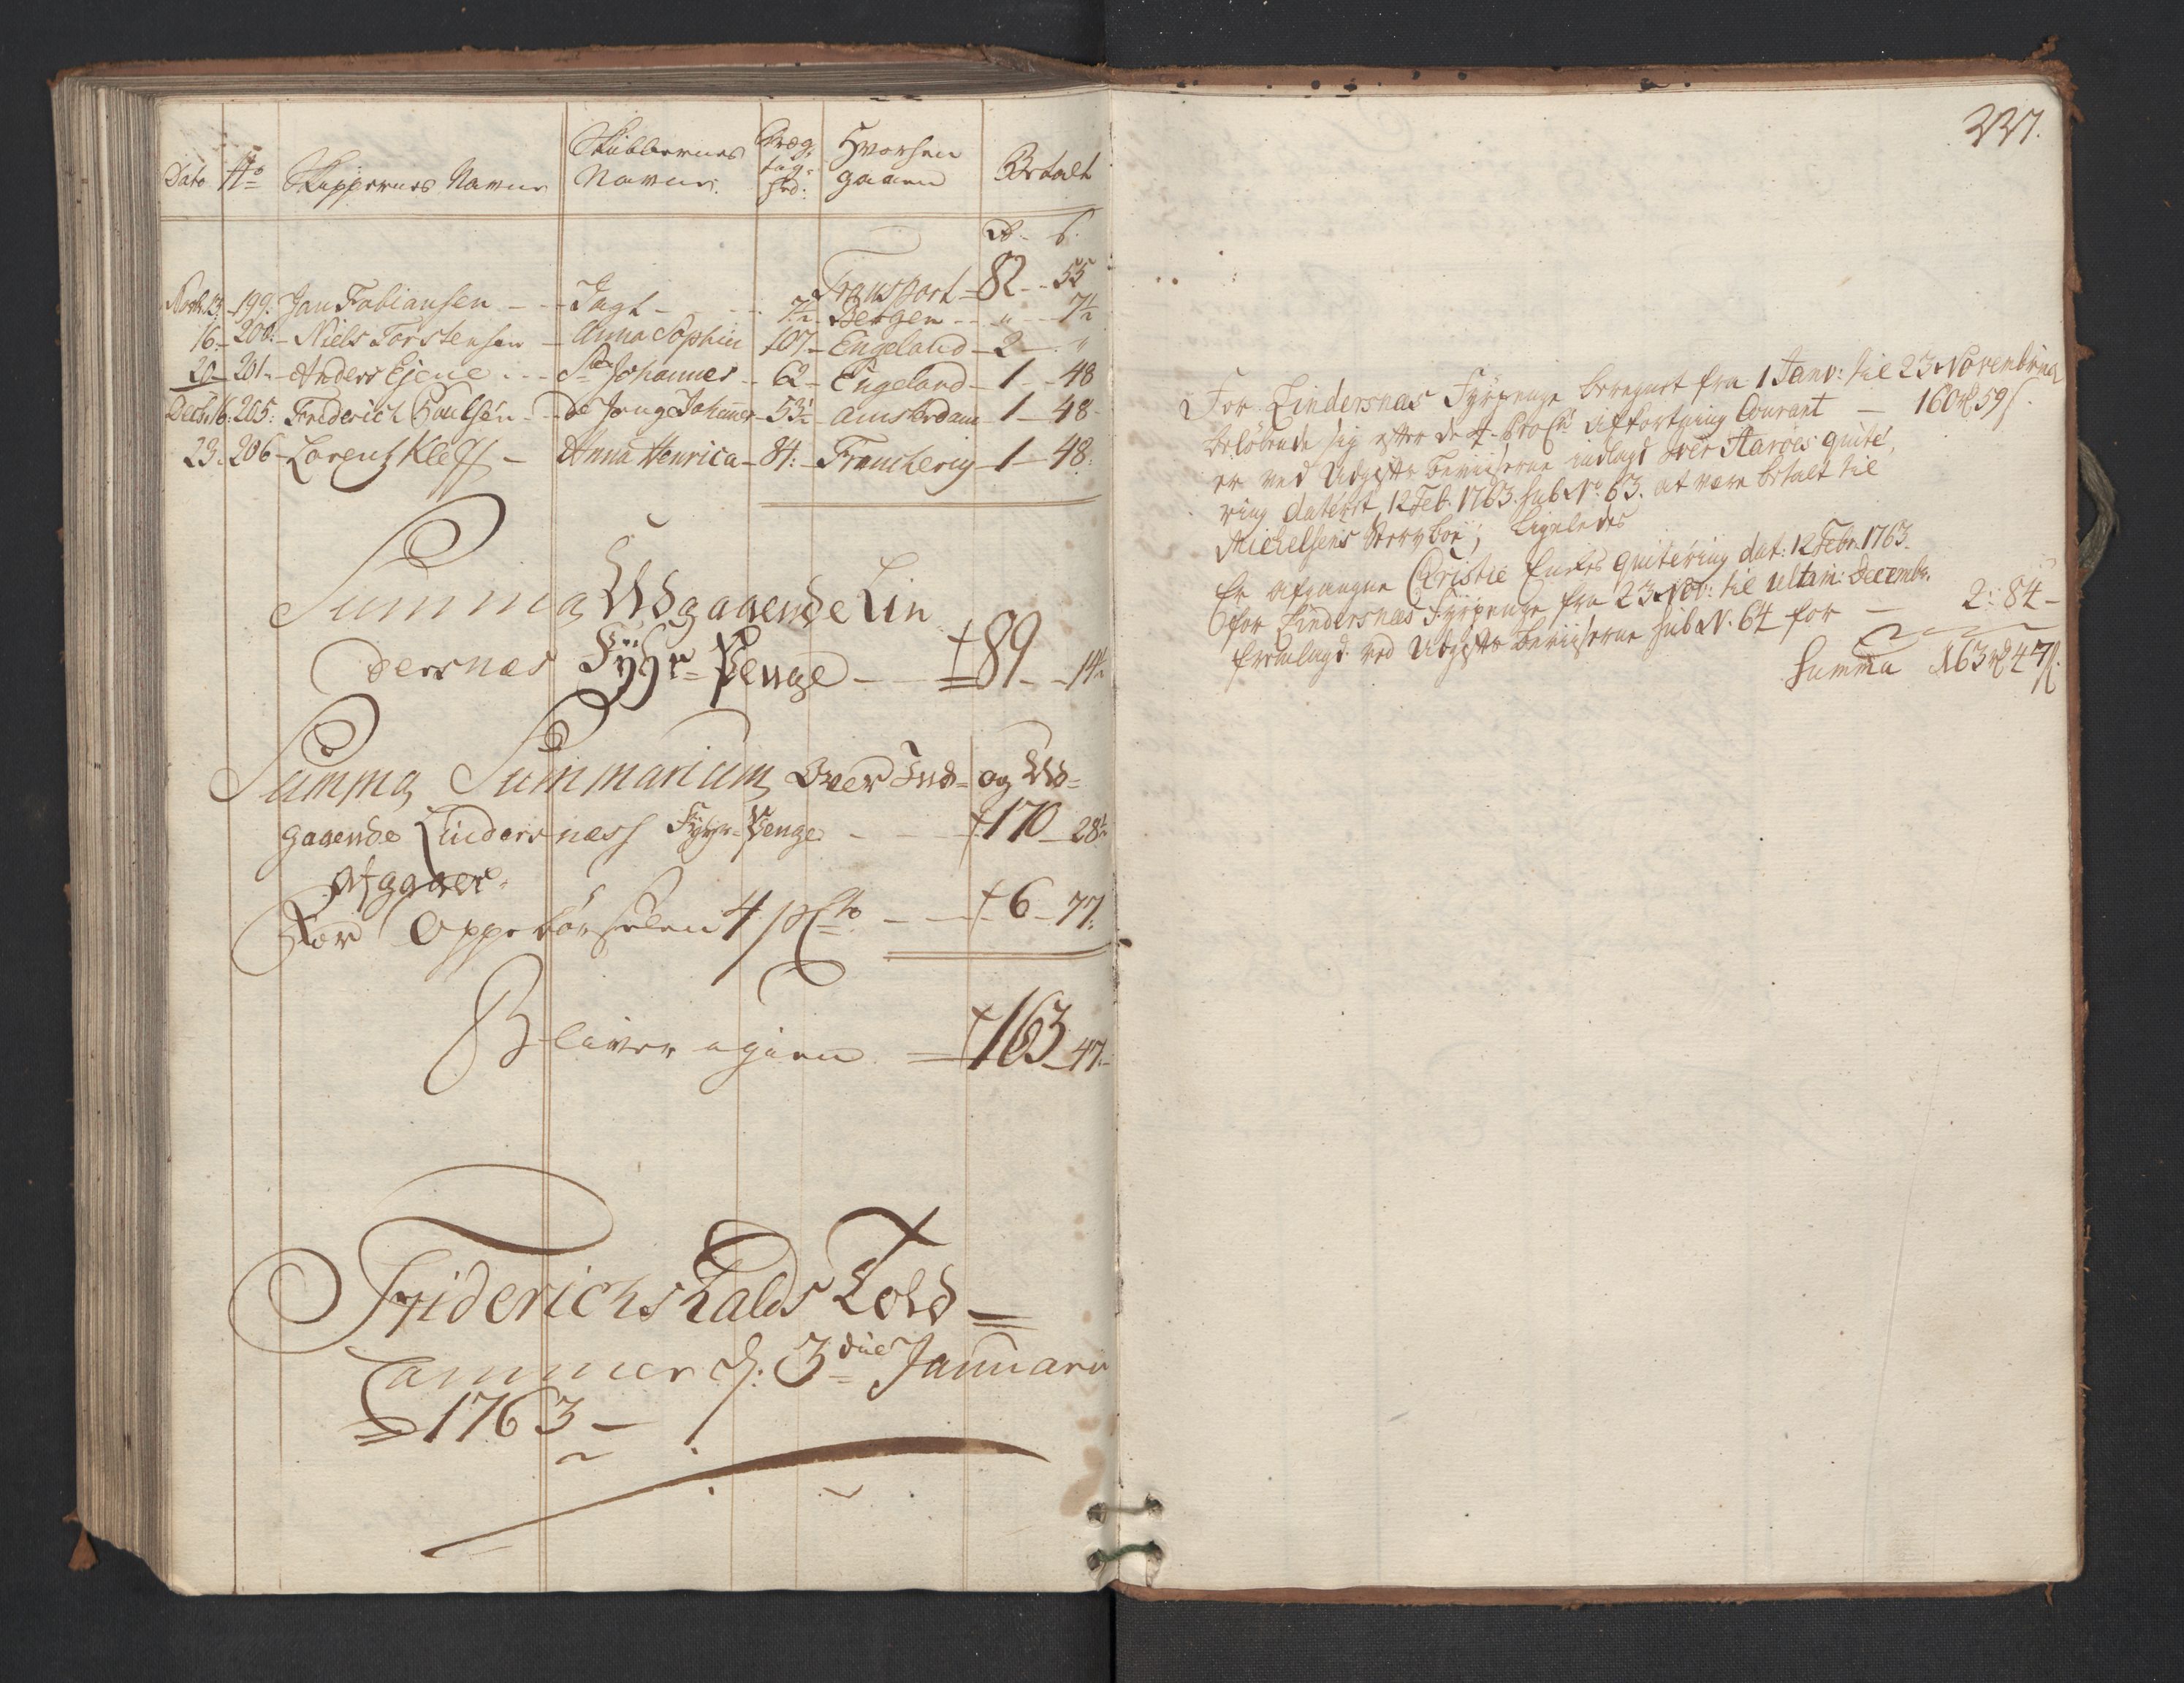 Dato
No
Skippernes Navne
Skibbernes Navne.
Dræg- tig- hed:
Hvorhen gaaen
Betalt
Rd. ß.
Transport 82 - 55
Novb. 13. 199. Jan Fabiansen - Jagt - 7½ - Bergen - " - 7½
16. 200. Niels Torstensen - Anna Sophia 107 - Engeland - 2 - "
20 - 201 - Anders Ejene - St Johannes - 62 - Engeland - 1 - 48
Decb. 16. 205. Friderich Poulsen - De Jonge Johannes - 53½ - Amsterdam - 1 - 48
23. 206 - Lorentz Kleff - Anna Henrica - 84: - Francherig - 1 - 48.
Summa Udgaaende Lin
dersnes Fyhr-Penge - 89 - 14½
Summa Summarium Over Ind- og Ud-
gaaende Lindersness Fyhr-Penge - 170 - 28½
Afgaaer.
For Oppebørselen 4 pCto - 6 - 77.
Bliver igien 163 - 47.
Friderichshalds Told-
Cammer d. 3die Januarii
1763
227.
For Lindersnæs Fyrpenge beregnet fra 1 Janv: til 23 Novembring
beløbende sig efter de 4 ProCt Afkortning Courant - 160 rd 59 ß.
er ved Udgifts Beviiserne indlagt quite-
ring dateret 12 Feb. 1763. sub No. 63. at være betalt til
Michelsens Sterboe; Ligeledes
Er Christie Enkes quitering dat: 12 Febr. 1763.
for Lindersnæs Fyrpenge fra 23 Nov: til ultim: Decembr.
fremlagd ved Udgifts Beviiserne sub N. 64 for - 2: 84 -
Summa 163 rd 47 ß.